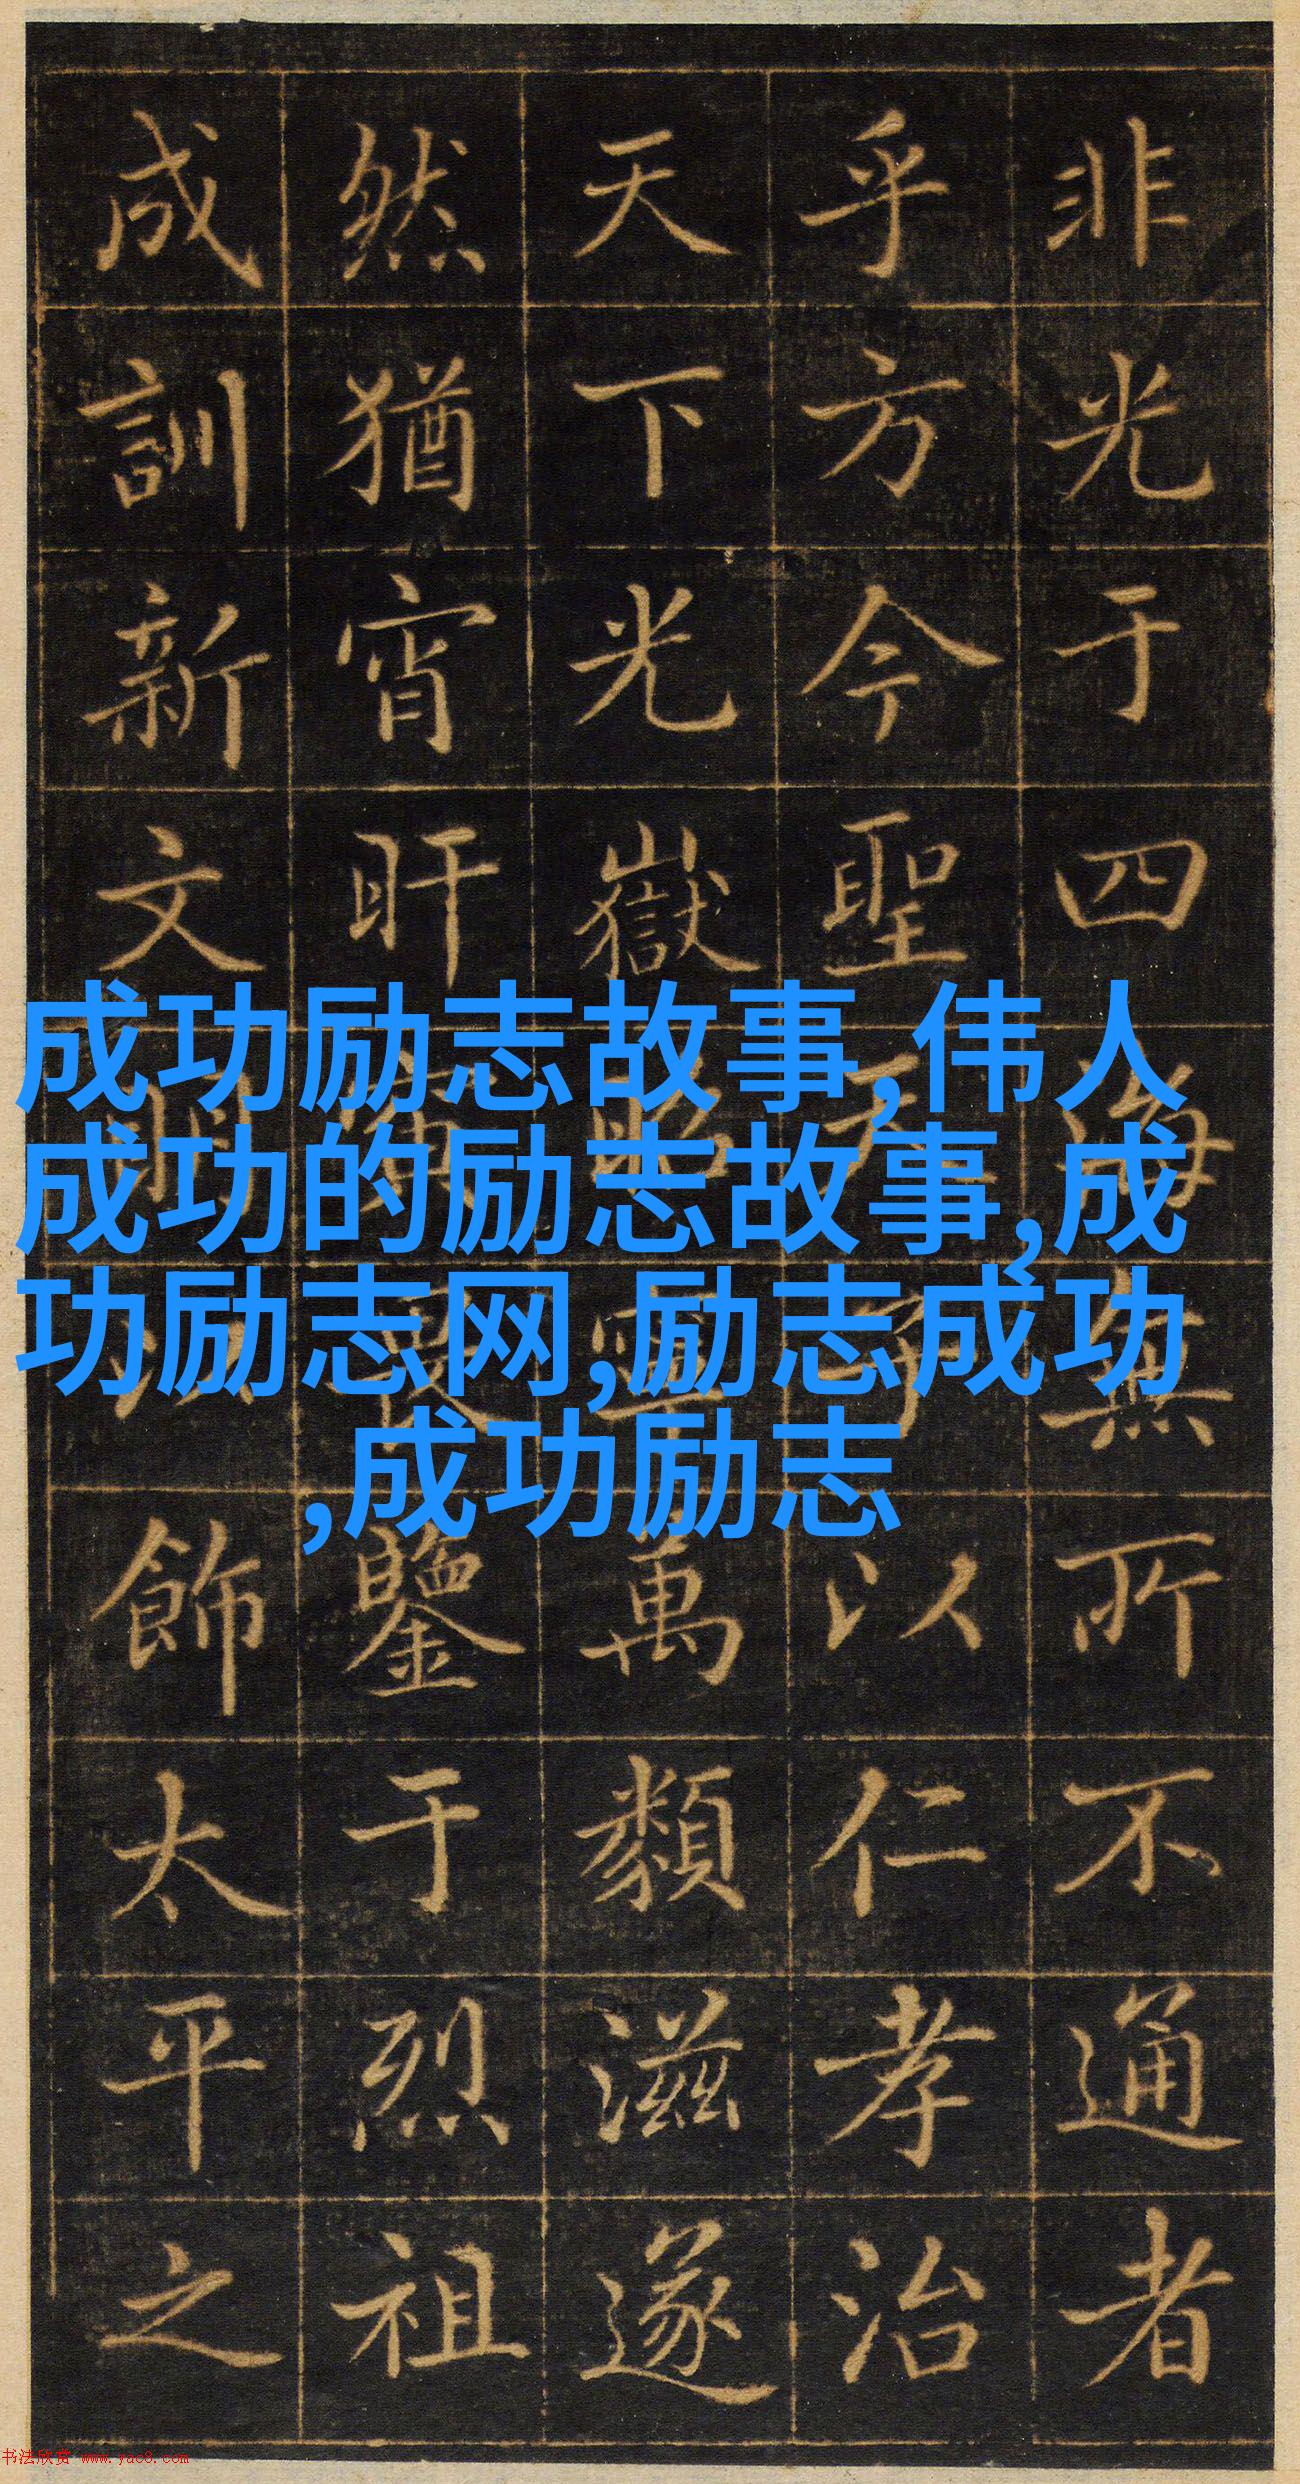 非光于四海無所不通者
乎方今聖天子以仁孝治
天下光嶽昭萬類滋遂
然猶宵旰寅畏鑒于烈祖
成訓新文明以飾太平之
成功励志故事,伟人
成功的励志故事,成
功励志网,励志成功
,成功励志
书法欣赏 www.yac8.com